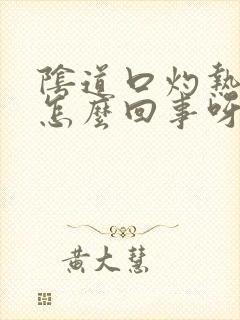 陰道口灼熱
怎麼回事呀
黃大慧